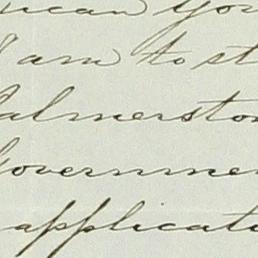 mean you
I am to st
Palmerston
Government
applicati